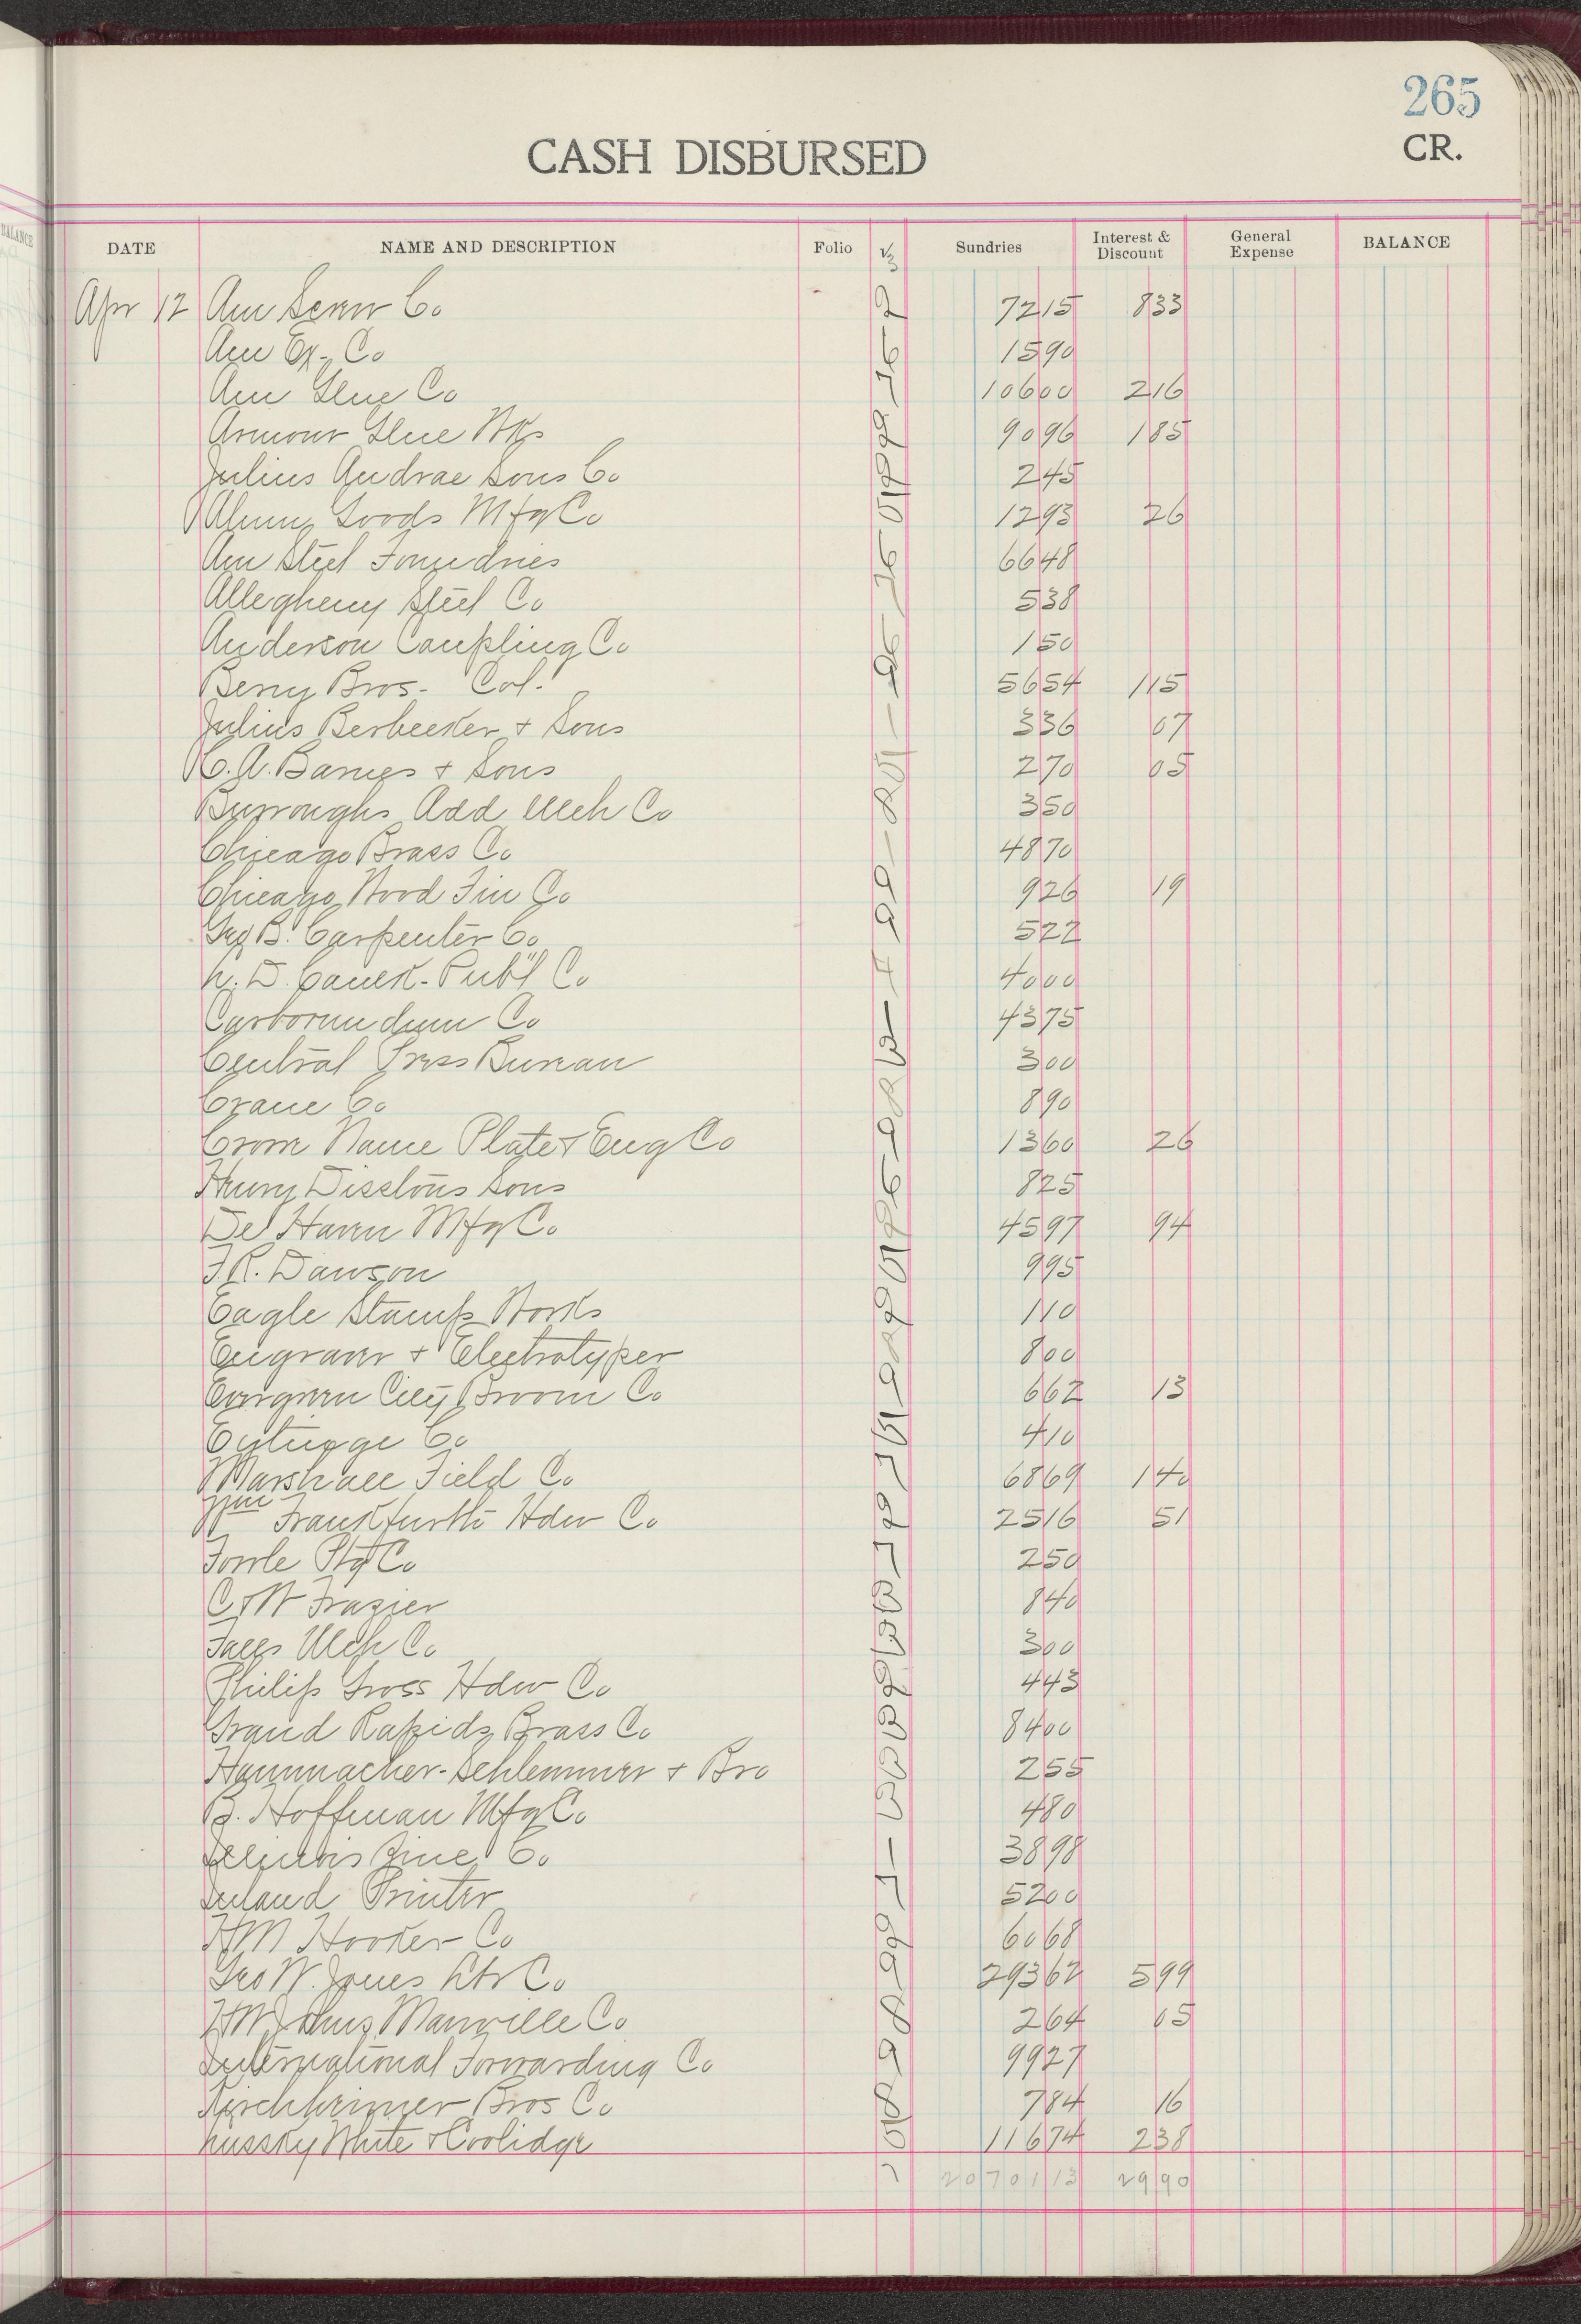 265
CASH DISBURSED
CR.
DATE NAME AND DESCRIPTION Folio √ Sundries Interest & Discount General Expense BALANCE
Apr 12 Am Screw Co 72 15 8 33
Am Ex. Co 15 90
Am Glue Co 106 00 2 16
Armour Glue Wks 90 96 1 85
Julius Andrae Sons Co 2 45
Alum Goods Mfg Co 12 93 26
Am Steel Foundries 66 48
Allegheny Steel Co 5 38
Anderson Coupling Co 1 50
Berry Bros - Col. 56 54 1 15
Julius Berbecker & Sons 3 36 07
C. A. Barnes & Sons 2 70 05
Burroughs Add Mch Co 3 50
Chicago Brass Co 48 70
Chicago Wood Fin Co 9 26 19
Geo B. Carpenter Co 5 22
L. D. Caulk - Pub'l Co 40 00
Carborundum Co 43 75
Central Press Bureau 3 00
Crane Co 8 90
Crom Name Plate & Eng Co 13 60 26
Henry Disstons Sons 8 25
De Haven Mfg Co 45 97 94
F R. Dawson 9 95
Eagle Stamp Works 1 10
Engraver & Electrotyper 8 00
Evergreen City Broom Co 6 62 13
Eytinge Co 4 10
Marshall Field Co 68 69 1 40
Wm Frankfurth Hdw Co 25 16 51
Fowle Ptg Co 2 50
C W Frazier 8 40
Falls Mch Co 3 00
Philip Gross Hdw Co 4 43
Grand Rapids Brass Co 84 00
Hammacher-Schlemmer & Bro 2 55
B. Hoffman Mfg Co 4 80
Illinois Zinc Co 38 98
Inland Printer 52 00
H M Hooker Co 60 68
Geo W. Jones Lbr Co 293 62 5 99
H W Johns Manville Co 2 64 05
International Forwarding Co 99 27
Kirchheimer Bros Co 7 84 16
Lussky White & Coolidge 116 74 2 38
20701 13 29 90